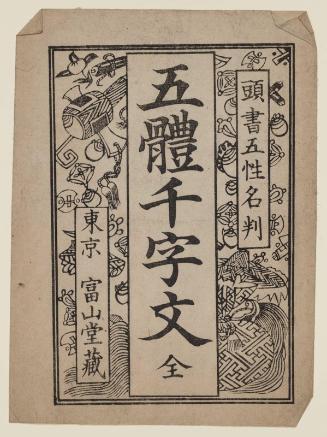 頭書五性名判
五體千字文 全
東京 富山堂藏